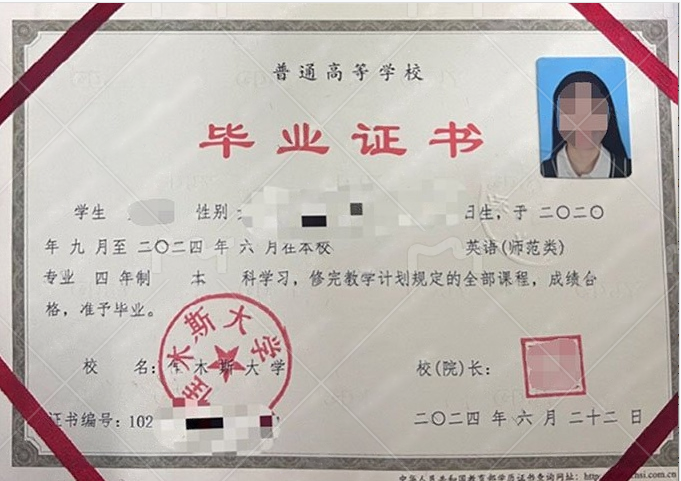 普通高等学校
毕业证书
学生 性别 日生，于 二〇二〇
年 九 月至 二〇二四 年 六 月在本校 英语(师范类)
专业 四 年制 本 科学习，修完教学计划规定的全部课程，成绩合
格，准予毕业。
佳木斯大学
校 名：佳木斯大学 校(院)长：
证书编号：102 二〇二四 年 六 月 二十二 日
中华人民共和国教育部学历证书查询网址：http hsi.com.cn